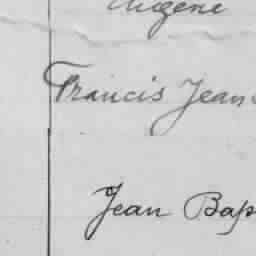 Eugene
Francis Jean
Jean Bap